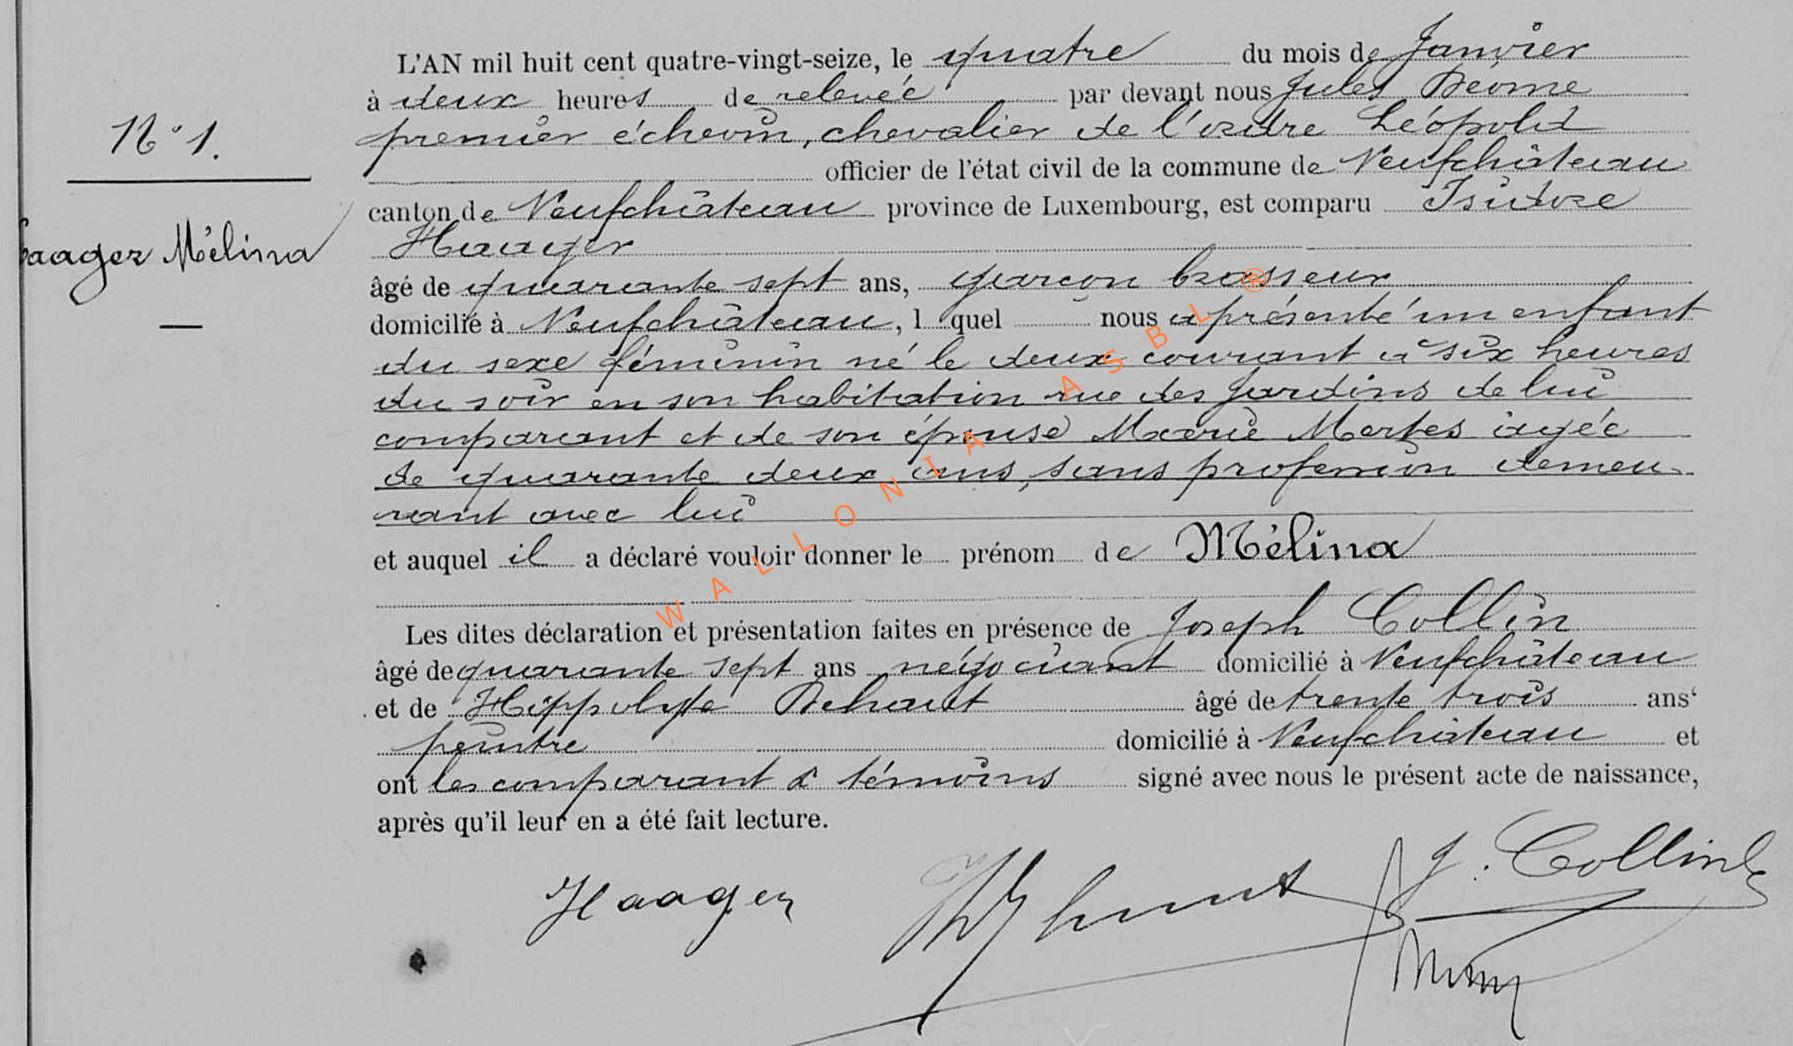 L'AN mil huit cent quatre-vingt-seize, le quatre du mois de Janvier
à deux heures de relevée par devant nous Jules
premier échevin, chevalier de l'ordre Léopold
officier de l'état civil de la commune de Neufchâteau
canton de Neufchâteau province de Luxembourg, est comparu Isidore
Haager
âgé de quarante sept ans, garçon brasseur
domicilié à Neufchâteau, l quel nous a présenté un enfant
du sexe féminin né le deux courant à six heures
du soir en son habitation rue des Jardins de lui
comparant et de son épouse Marie Mertes âgée
de quarante deux ans, sans profession demeu-
rant avec lui
et auquel il a déclaré vouloir donner le prénom de Mélina
Les dites déclaration et présentation faites en présence de Joseph Collin
âgé de quarante sept ans négociant domicilié à Neufchâteau
et de Hippolyte Dehaut âgé de trente trois ans
peintre domicilié à Neufchâteau et
ont les comparant & témoins signé avec nous le présent acte de naissance,
après qu'il leur en a été fait lecture.
Haager
J. Collin
N° 1.
Haager Mélina
WALLONIA ASBL ®